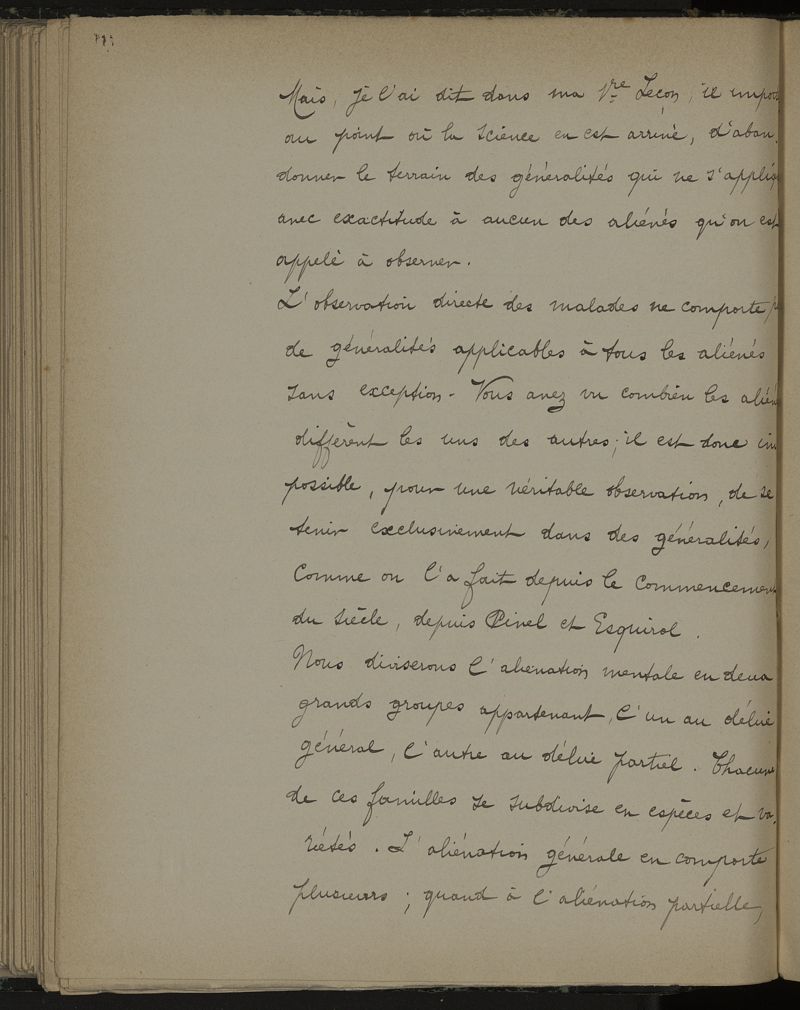 Mais, je l'ai dit dans ma 1re Leçon, il impor
au point où la science en est arrivé, d'aban-
donner le terrain des généralités qui ne s'appliq
avec exactitude à aucun des aliénés qu'on est
appelé à observer.
L'observation directe des malades ne comporte p
de généralités applicables à tous les aliénés
sans exception - Vous avez vu combien les alién
diffèrent les uns des autres; il est donc im
possible, pour une véritable observation, de se
tenir exclusivement dans des généralités,
comme on l'a fait depuis le commencemen
du siècle, depuis Pinel et Esquirol.
Nous diviserons l'aliénation mentale en deux
grands groupes appartenant, l'un au délire
général, l'autre au délire partiel. Chacune
de ces familles se subdivise en espèces et va-
riétés. L'aliénation générale en comporte
plusieurs; quand à l'aliénation partielle,